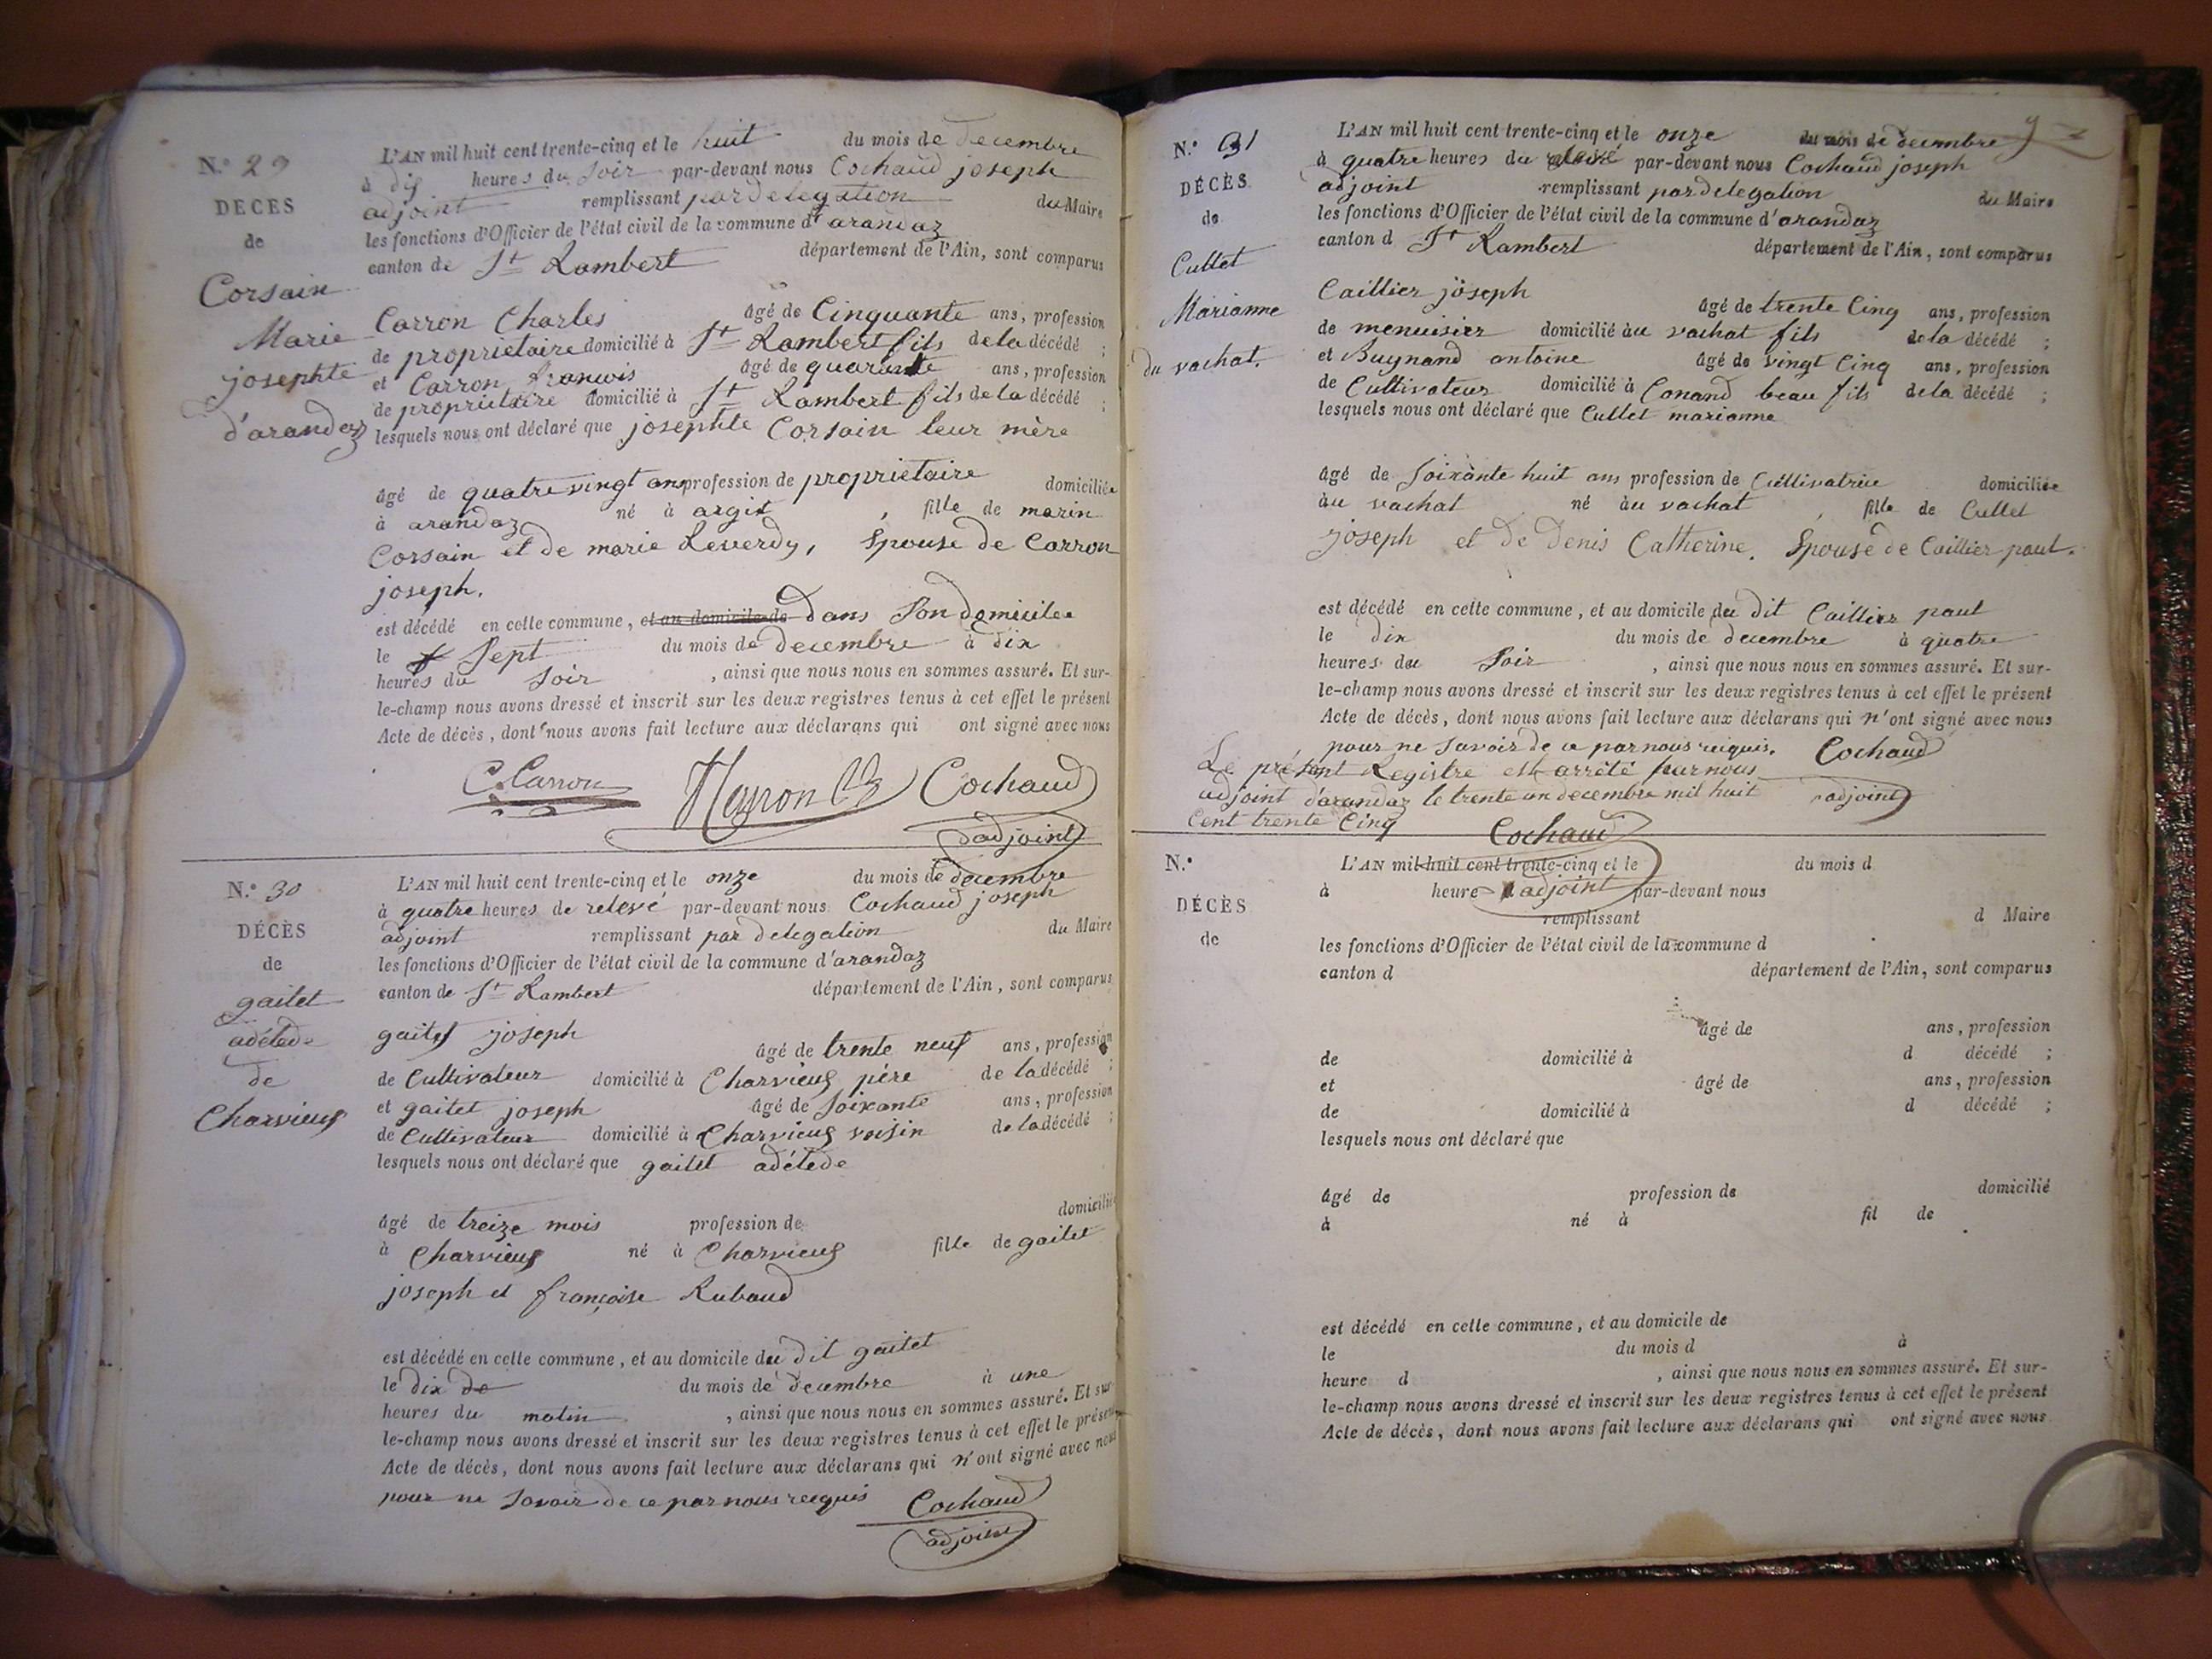 N.° 29
DÉCÈS
de
Corsain
Marie
josephte
d'arandaz
L'AN mil huit cent trente-cinq et le huit du mois de decembre
à dix heures du soir par-devant nous Cochaud joseph
adjoint remplissant par delegation du Maire
les fonctions d'Officier de l'état civil de la commune d'arandaz
canton de St Rambert département de l'Ain, sont comparus
Carron Charles âgé de Cinquante ans, profession
de proprietaire domicilié à St Rambert fils de la décédé ;
et Carron francois âgé de quarante ans, profession
de proprietaire domicilié à St Rambert fils de la décédé ;
lesquels nous ont déclaré que josephte Corsain leur mère
âgé de quatre vingt ans profession de proprietaire domiciliée
à arandaz né à argit, fille de marin
Corsain et de marie Reverdy, Epouse de Carron
joseph.
est décédé en cette commune, et au domicile de dans Son domicile
le Sept du mois de decembre à dix
heures du Soir, ainsi que nous nous en sommes assuré. Et sur-
le-champ nous avons dressé et inscrit sur les deux registres tenus à cet effet le présent
Acte de décès, dont nous avons fait lecture aux déclarans qui ont signé avec nous
C. Carron Cochaud
adjoint
N.° 30
DÉCÈS
de
gaitet
adélede
de
Charvieux
L'AN mil huit cent trente-cinq et le onze du mois de decembre
à quatre heures de relevé par-devant nous Cochaud joseph
adjoint remplissant par delegation du Maire
les fonctions d'Officier de l'état civil de la commune d'arandaz
canton de St Rambert département de l'Ain, sont comparus
gaitet joseph âgé de trente neuf ans, profession
de Cultivateur domicilié à Charvieux père de la décédé ;
et gaitet joseph âgé de Soixante ans, profession
de Cultivateur domicilié à Charvieux voisin de la décédé ;
lesquels nous ont déclaré que gaitet adélede
âgé de treize mois profession de domicilié
à Charvieux né à Charvieux fille de gaitet
joseph et françoise Rubaud
est décédé en cette commune, et au domicile du dit gaitet
le dix de du mois de decembre à une
heures du matin, ainsi que nous nous en sommes assuré. Et sur-
le-champ nous avons dressé et inscrit sur les deux registres tenus à cet effet le présent
Acte de décès, dont nous avons fait lecture aux déclarans qui n'ont signé avec nous
pour ne Savoir de ce par nous requis Cochaud
adjoint
N.° 31
DÉCÈS
de
Cullet
Marianne
du vachat.
L'AN mil huit cent trente-cinq et le onze du mois de decembre
à quatre heures du par-devant nous Cochaud joseph
adjoint remplissant par delegation du Maire
les fonctions d'Officier de l'état civil de la commune d'arandaz
canton d St Rambert département de l'Ain, sont comparus
Caillier joseph âgé de trente Cinq ans, profession
de menuisier domicilié au vachat fils de la décédé ;
et Buynand antoine âgé de vingt Cinq ans, profession
de Cultivateur domicilié à Conand beau fils de la décédé ;
lesquels nous ont déclaré que Cullet marianne
âgé de Soixante huit ans profession de Cultivatrice domiciliée
au vachat né au vachat, fille de Cullet
joseph et de Denis Catherine. Epouse de Caillier paul.
est décédé en cette commune, et au domicile du dit Caillier paul
le dix du mois de decembre à quatre
heures du Soir, ainsi que nous nous en sommes assuré. Et sur-
le-champ nous avons dressé et inscrit sur les deux registres tenus à cet effet le présent
Acte de décès, dont nous avons fait lecture aux déclarans qui n'ont signé avec nous
pour ne Savoir de ce par nous requis. Cochaud
adjoint
Le présent Registre est arrêté par nous
adjoint d'arandaz le trente un decembre mil huit
Cent trente Cinq Cochaud
adjoint
N.°
DÉCÈS
de
L'AN mil huit cent trente-cinq et le du mois d
à heure par-devant nous
remplissant d Maire
les fonctions d'Officier de l'état civil de la commune d
canton d département de l'Ain, sont comparus
âgé de ans, profession
de domicilié à d décédé ;
et âgé de ans, profession
de domicilié à d décédé ;
lesquels nous ont déclaré que
âgé de profession de domicilié
à né à fil de
est décédé en cette commune, et au domicile de
le du mois d à
heure d, ainsi que nous nous en sommes assuré. Et sur-
le-champ nous avons dressé et inscrit sur les deux registres tenus à cet effet le présent
Acte de décès, dont nous avons fait lecture aux déclarans qui ont signé avec nous